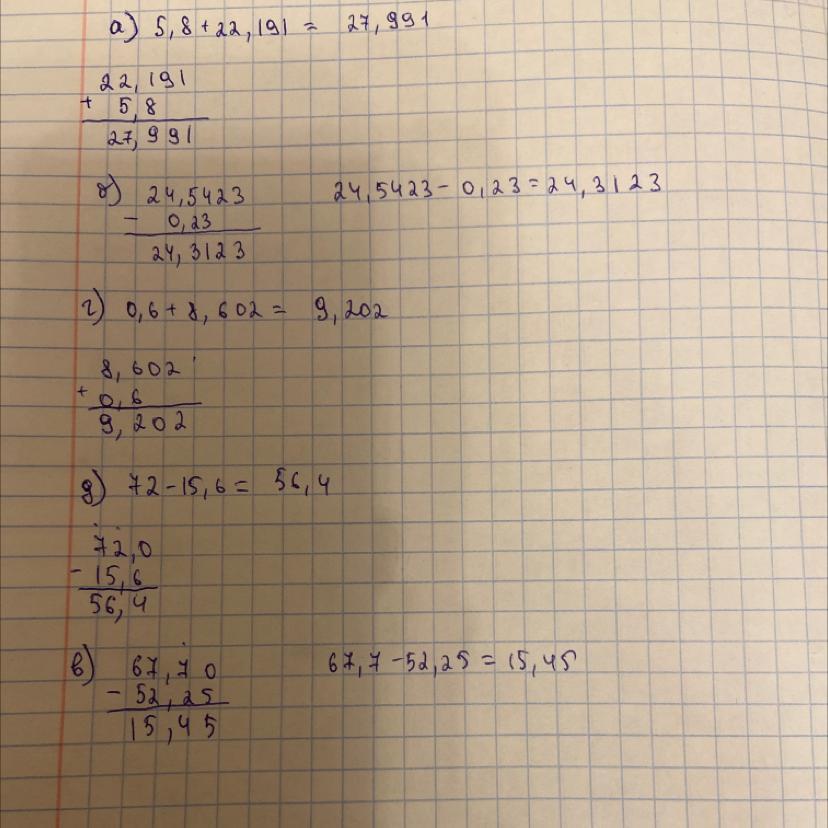 а) 5,8 + 22,191 = 27,991
22,191
+ 5,8
27,991
б) 24,5423 24,5423 - 0,23 = 24,3123
- 0,23
24,3123
г) 0,6 + 8,602 = 9,202
8,602
+ 0,6
9,202
д) 72 - 15,6 = 56,4
72,0
- 15,6
56,4
в) 67,70 67,7 - 52,25 = 15,45
- 52,25
15,45